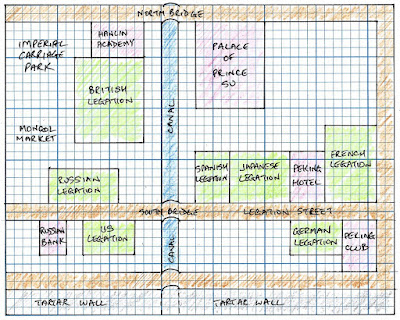 NORTH BRIDGE
IMPERIAL
CARRIAGE
PARK
HANLIN
ACADEMY
PALACE
OF
PRINCE
SU
BRITISH
LEGATION
CANAL
MONGOL
MARKET
FRENCH
LEGATION
SPANISH
LEGATION
JAPANESE
LEGATION
PEKING
HOTEL
RUSSIAN
LEGATION
SOUTH BRIDGE
LEGATION STREET
RUSSIAN
BANK
US
LEGATION
CANAL
GERMAN
LEGATION
PEKING
CLUB
TARTAR WALL
TARTAR WALL